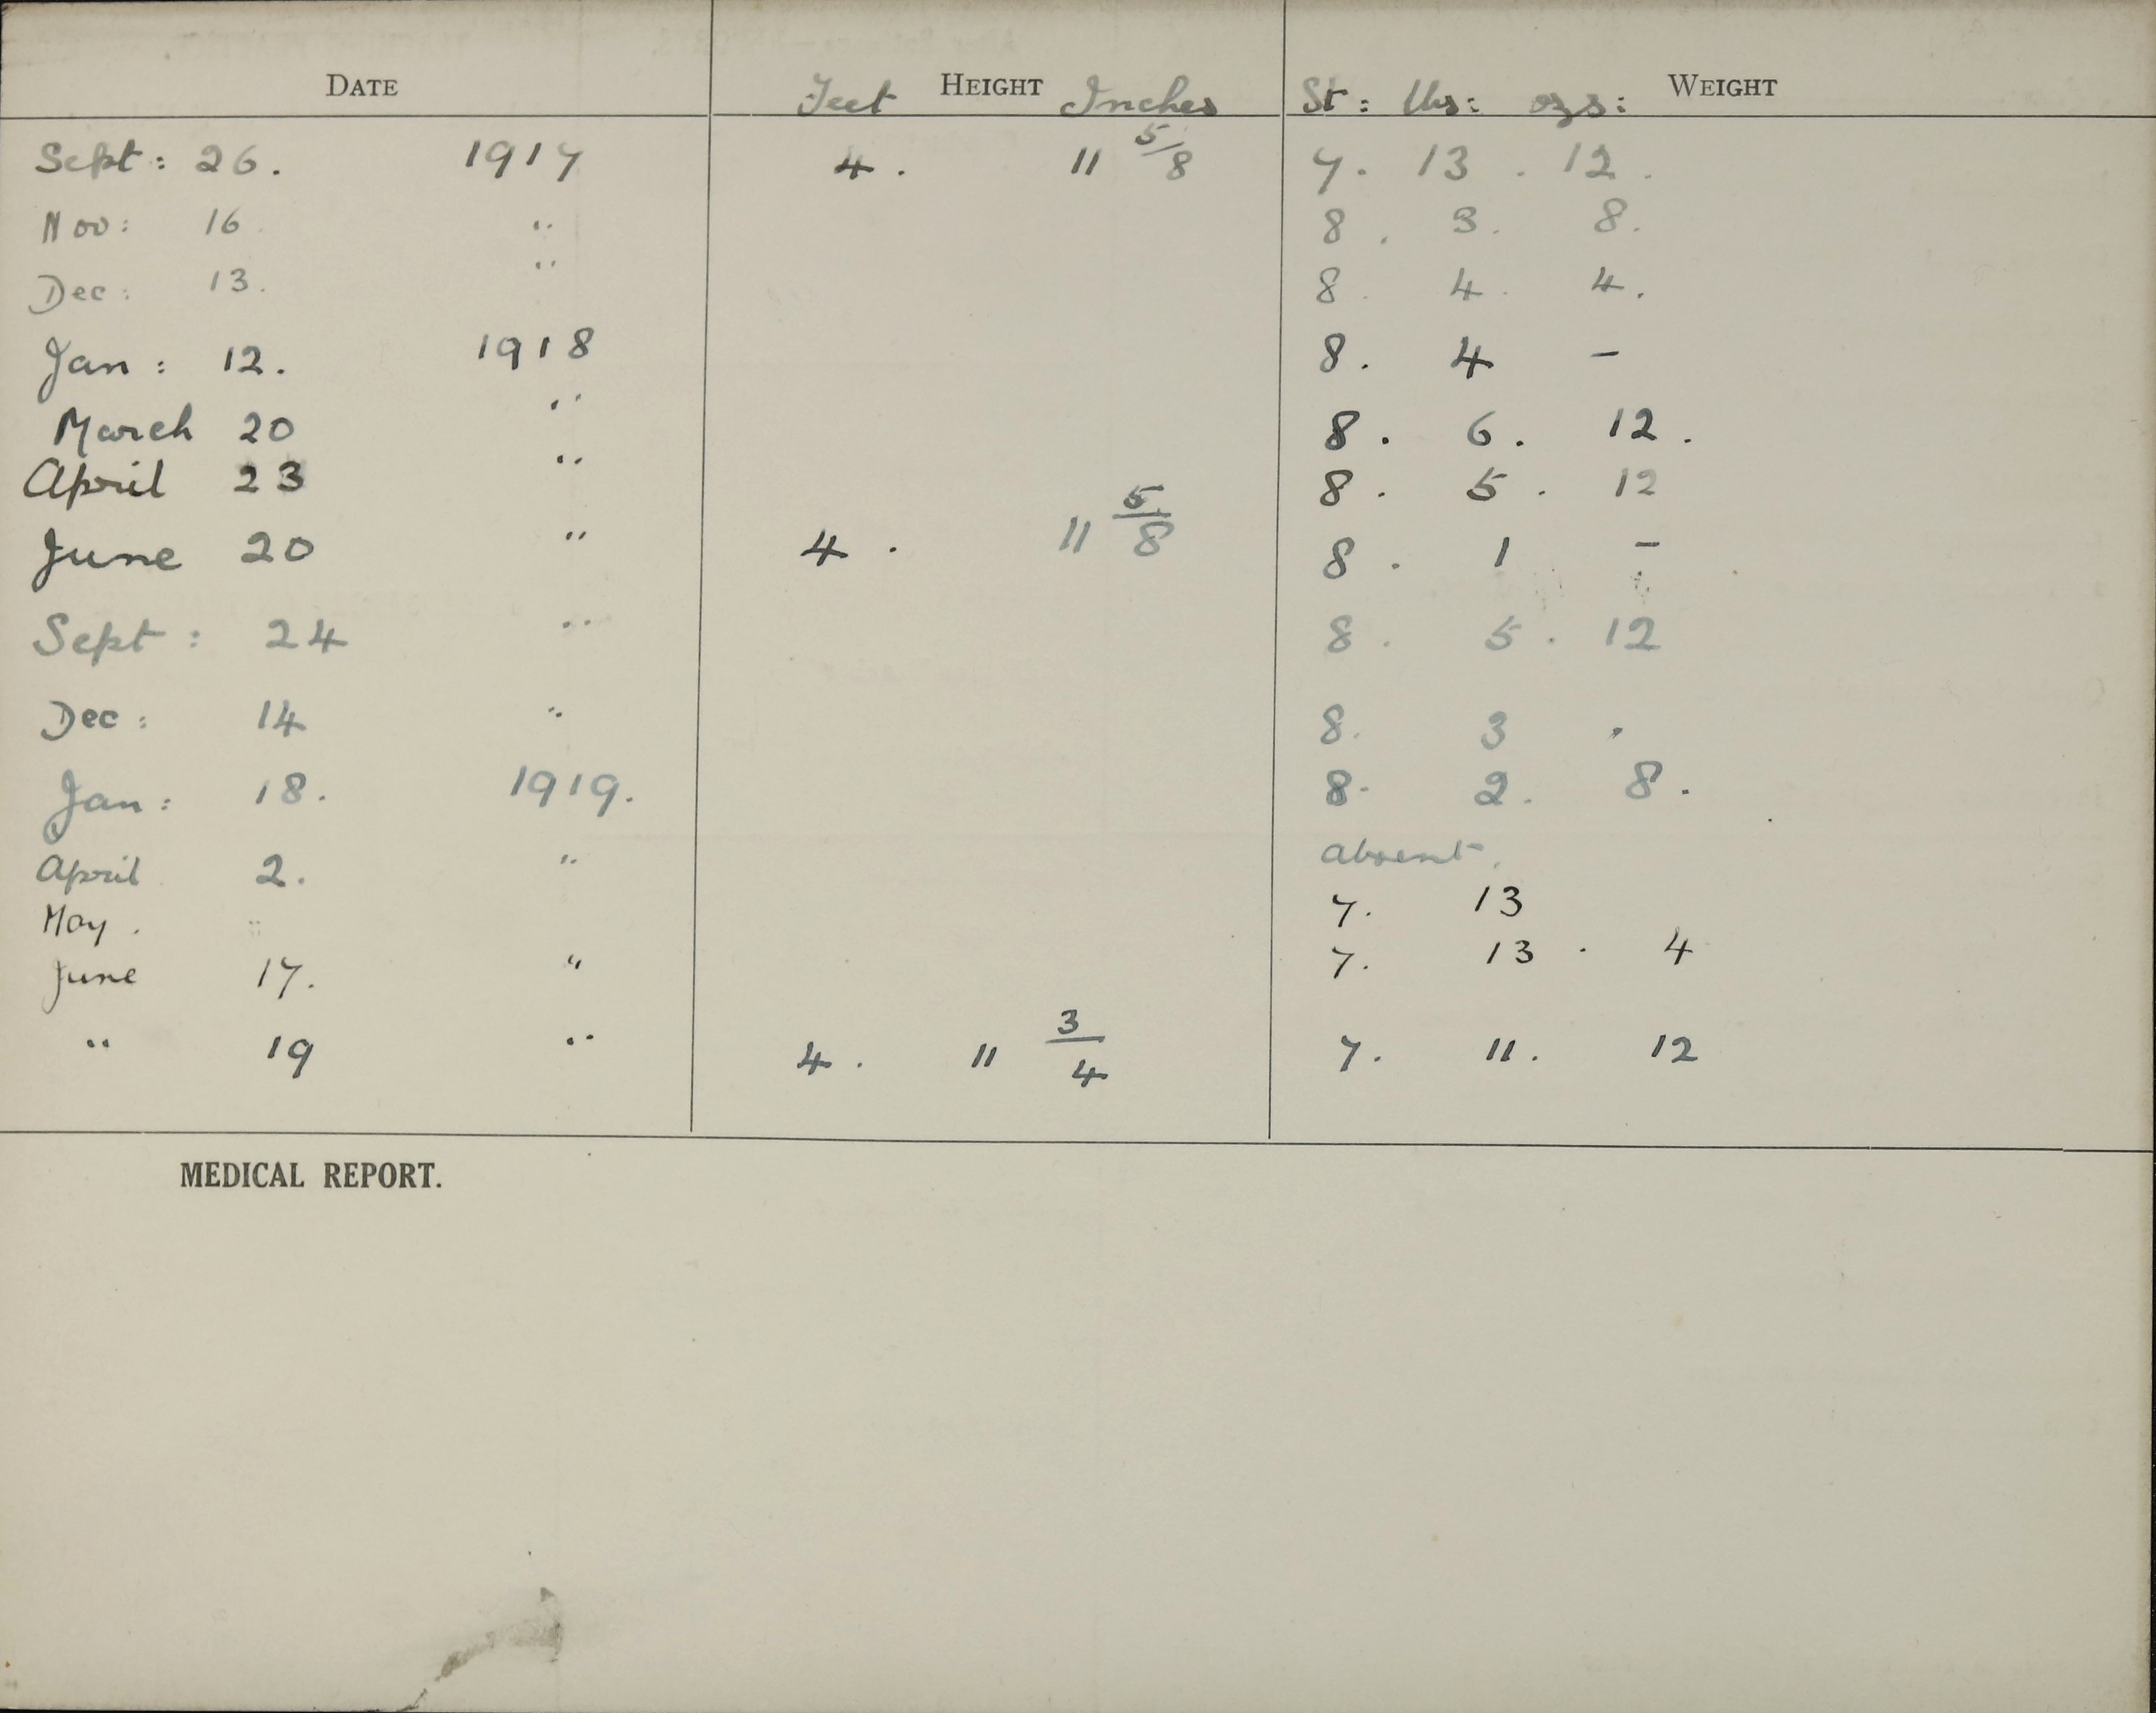 DATE Feet HEIGHT Inches St: lbs: ozs: WEIGHT
Sept: 26. 1917 4. 11 5/8 7. 13. 12.
Nov: 16. " 8. 3. 8.
Dec: 13. " 8. 4. 4.
Jan: 12. 1918 8. 4 -
March 20 " 8. 6. 12.
April 23 " 8. 5. 12
June 20 " 4. 11 5/8 8. 1 -
Sept: 24 " 8. 5. 12
Dec: 14 " 8. 3 .
Jan: 18. 1919. 8. 2. 8.
April 2. " absent.
May. " 7. 13
June 17. " 7. 13. 4
" 19 " 4. 11 3/4 7. 11. 12
MEDICAL REPORT.